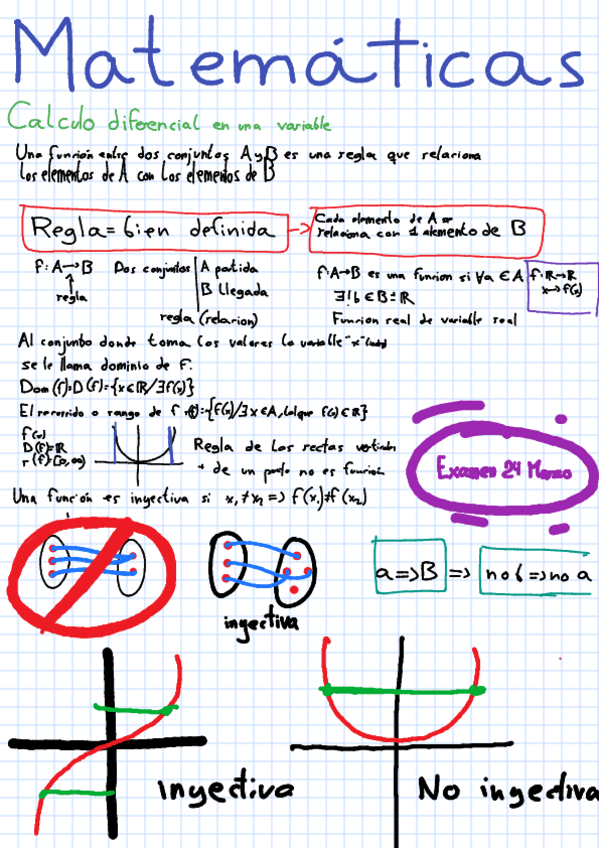 Matemáticas
Calculo diferencial en una variable
Una función entre dos conjuntos A y B es una regla que relaciona
los elementos de A con los elementos de B
Regla = bien definida -> Cada elemento de A se
relaciona con 1 elemento de B
f: A → B Dos conjuntos | A partida
B llegada
regla
regla (relacion)
f: A→B es una funcion si ∀a ∈ A
∃! b ∈ B
Funcion real de variable real
f: R → R
x → f(x)
Al conjunto donde toma los valores la variable "x"
se le llama dominio de F.
Dom(f)=D(f)={x∈R/∃f(x)}
El recorrido o rango de f r(f)={f(x)/∃x∈A, tal que f(x)∈R}
f(x)
D(f)=R
r(f)=[0,∞)
Regla de las rectas verticales
+ de un punto no es función
Examen 24 Marzo
Una función es inyectiva si x₁≠x₂ => f(x₁)≠f(x₂)
inyectiva
a => B => no b => no a
inyectiva
No inyectiva